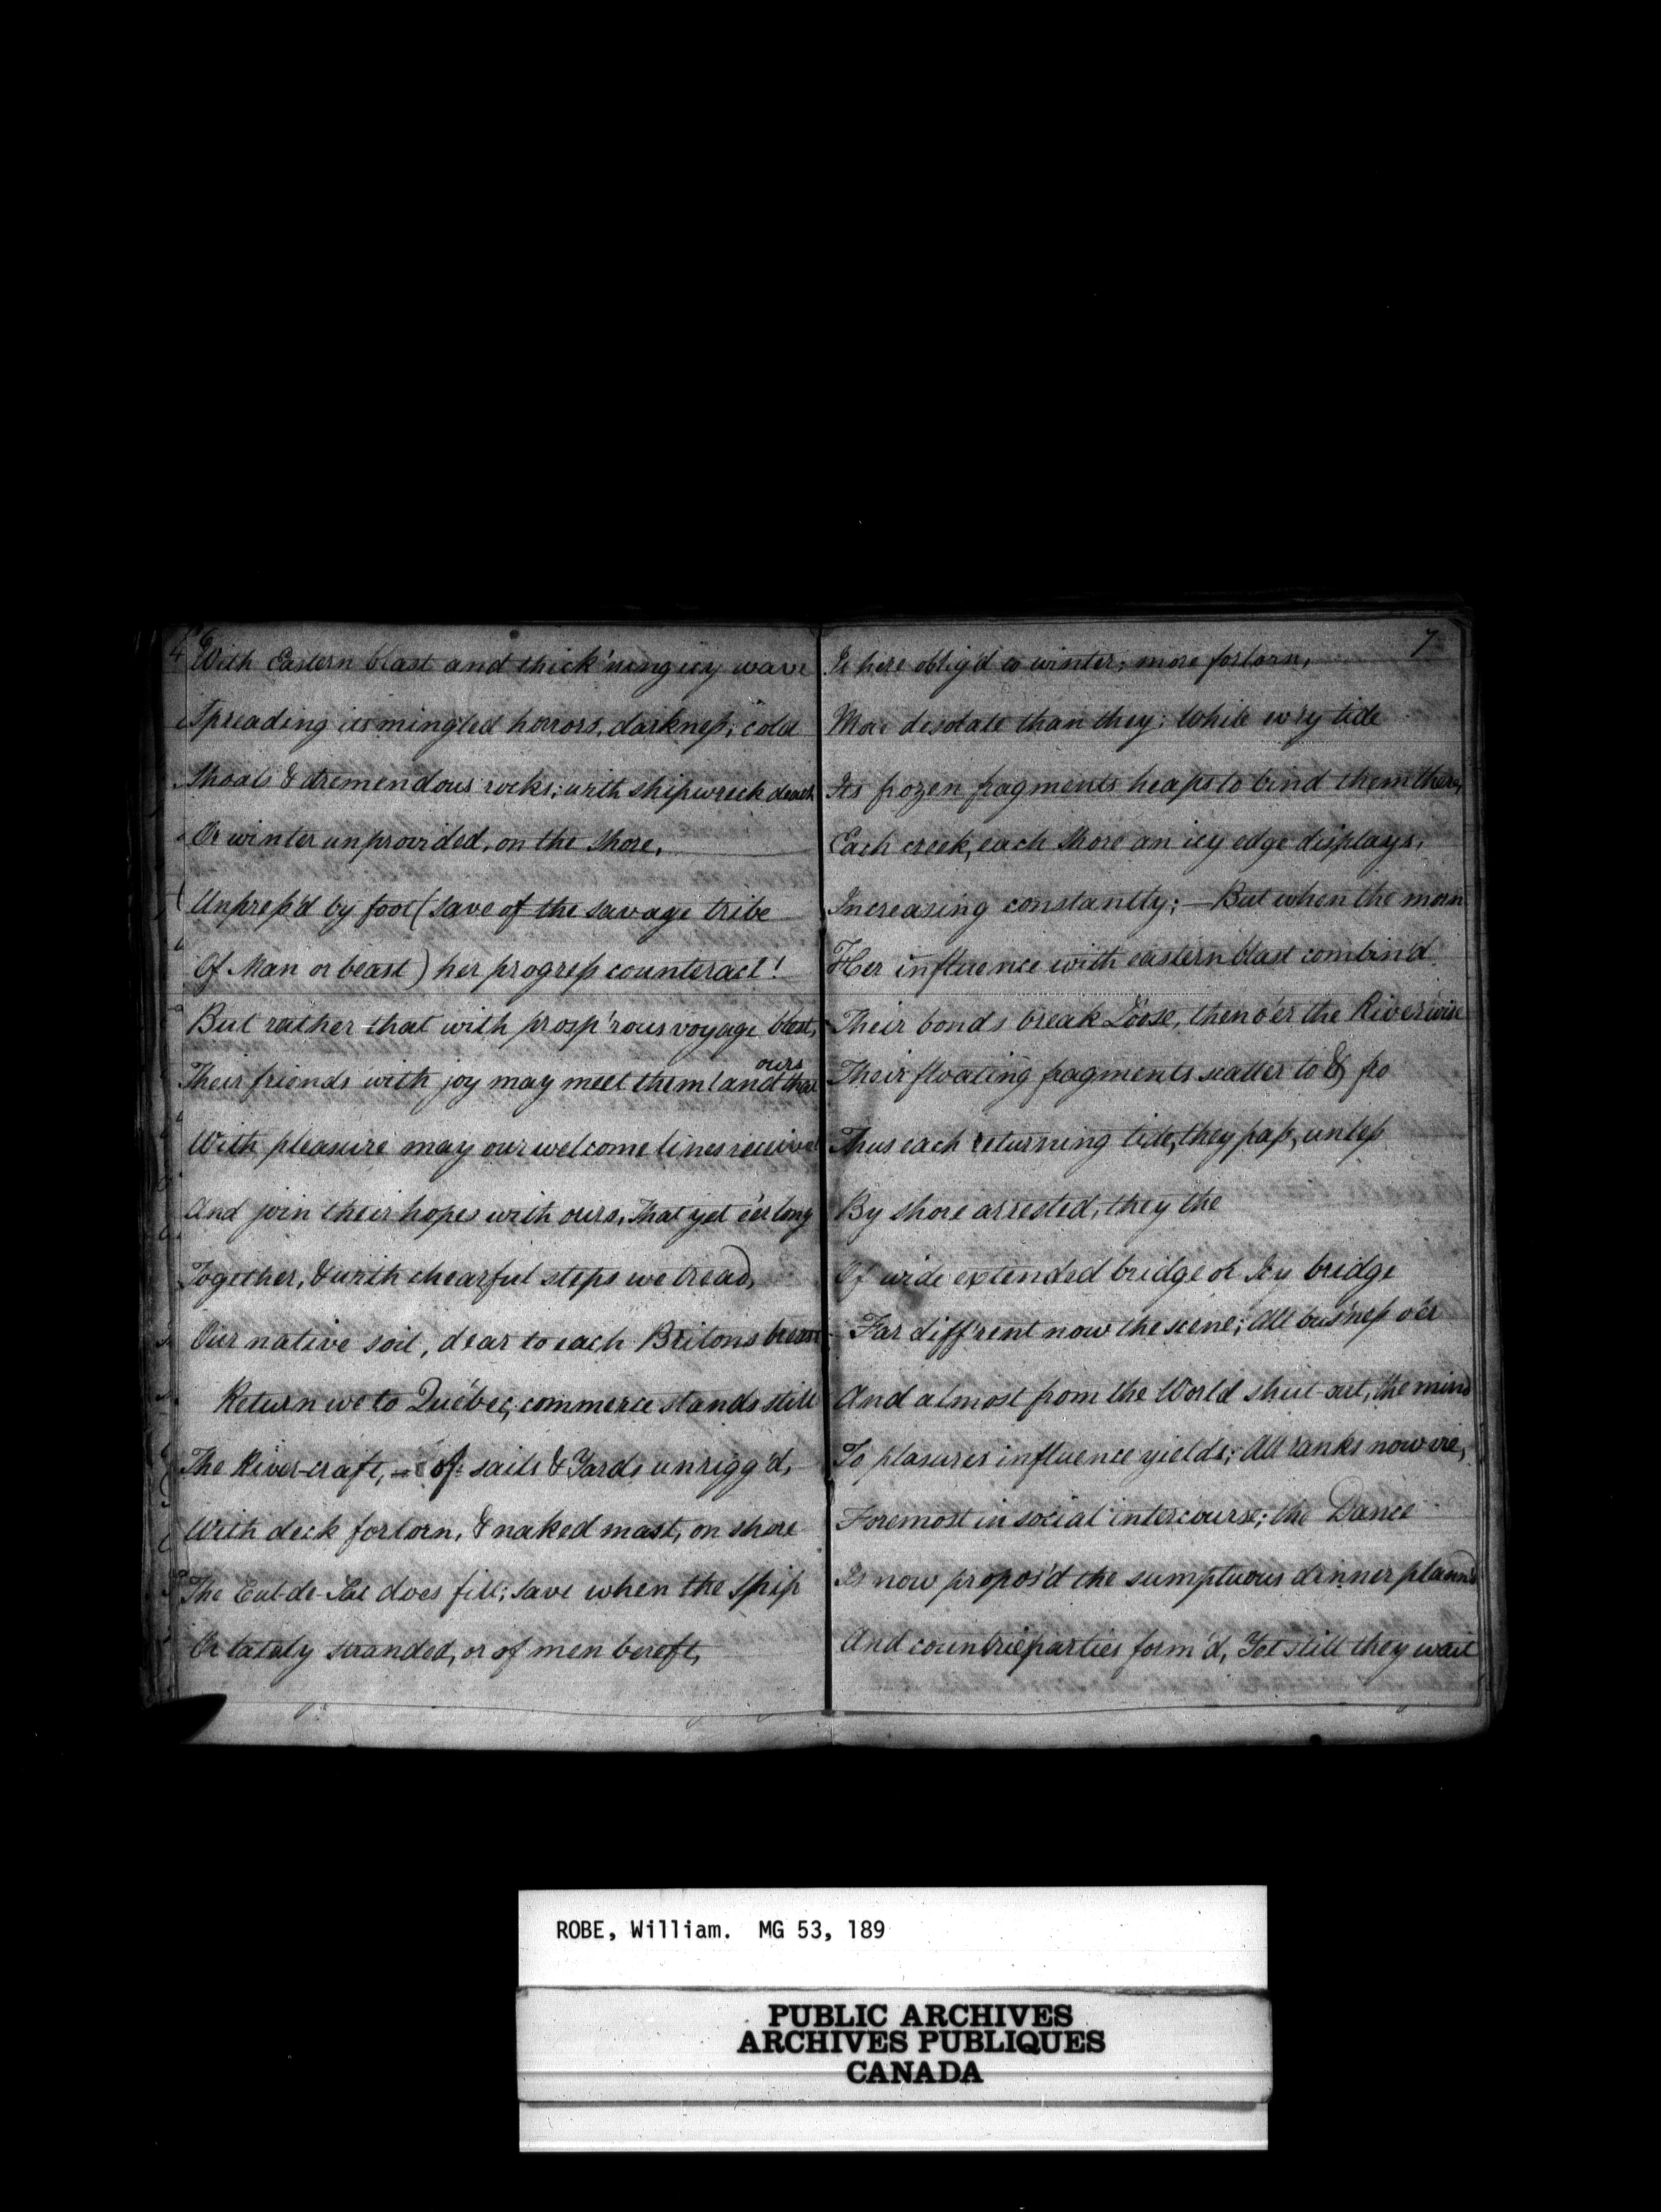 6
With Eastern blast and thick'ning icy wave
Spreading its mingled horrors, darkness, cold
Shoals & tremendous rocks; with shipwreck death
Or winter unprovided, on the shore,
Unpress'd by foot (save of the savage tribe
Of Man or beast) her progress counteract!
But rather that with prosp'rous voyage blest,
ours
Their friends with joy may meet them (and
With pleasure may our welcome lines receive
And join their hopes with ours, That yet e'er long
Together, & with chearful steps we tread,
Our native soil, dear to each Britons breast
Return we to Québec, commerce stands still
The River-craft, of sails & Yards unrigg'd,
With deck forlorn, & naked mast, on shore
The Cul-de-Sac does fill; save when the Ship
Or lately stranded, or of men bereft,
7
Is here oblig'd to winter; more forlorn,
More desolate than they; While ev'ry tide
Its frozen fragments heaps to bind them there,
Each creek, each shore an icy edge displays,
Increasing constantly; — But when the moon
Her influence with eastern blast combin'd
Their bonds break Loose, then o'er the River wide
Their floating fragments scatter to & fro
Thus each returning tide, they pass, unless
By shore arrested, they the
Of wide extended bridge or Icy bridge
Far diff'rent now the scene; All bus'ness o'er
And almost from the World shut-out, the mind
To plasures influence yields; All ranks now vie,
Foremost in social intercourse; the Dance
Is now propos'd the sumptuous dinner plann'd
And countrie parties form'd, Yet still they wait
ROBE, William. MG 53, 189
PUBLIC ARCHIVES
ARCHIVES PUBLIQUES
CANADA